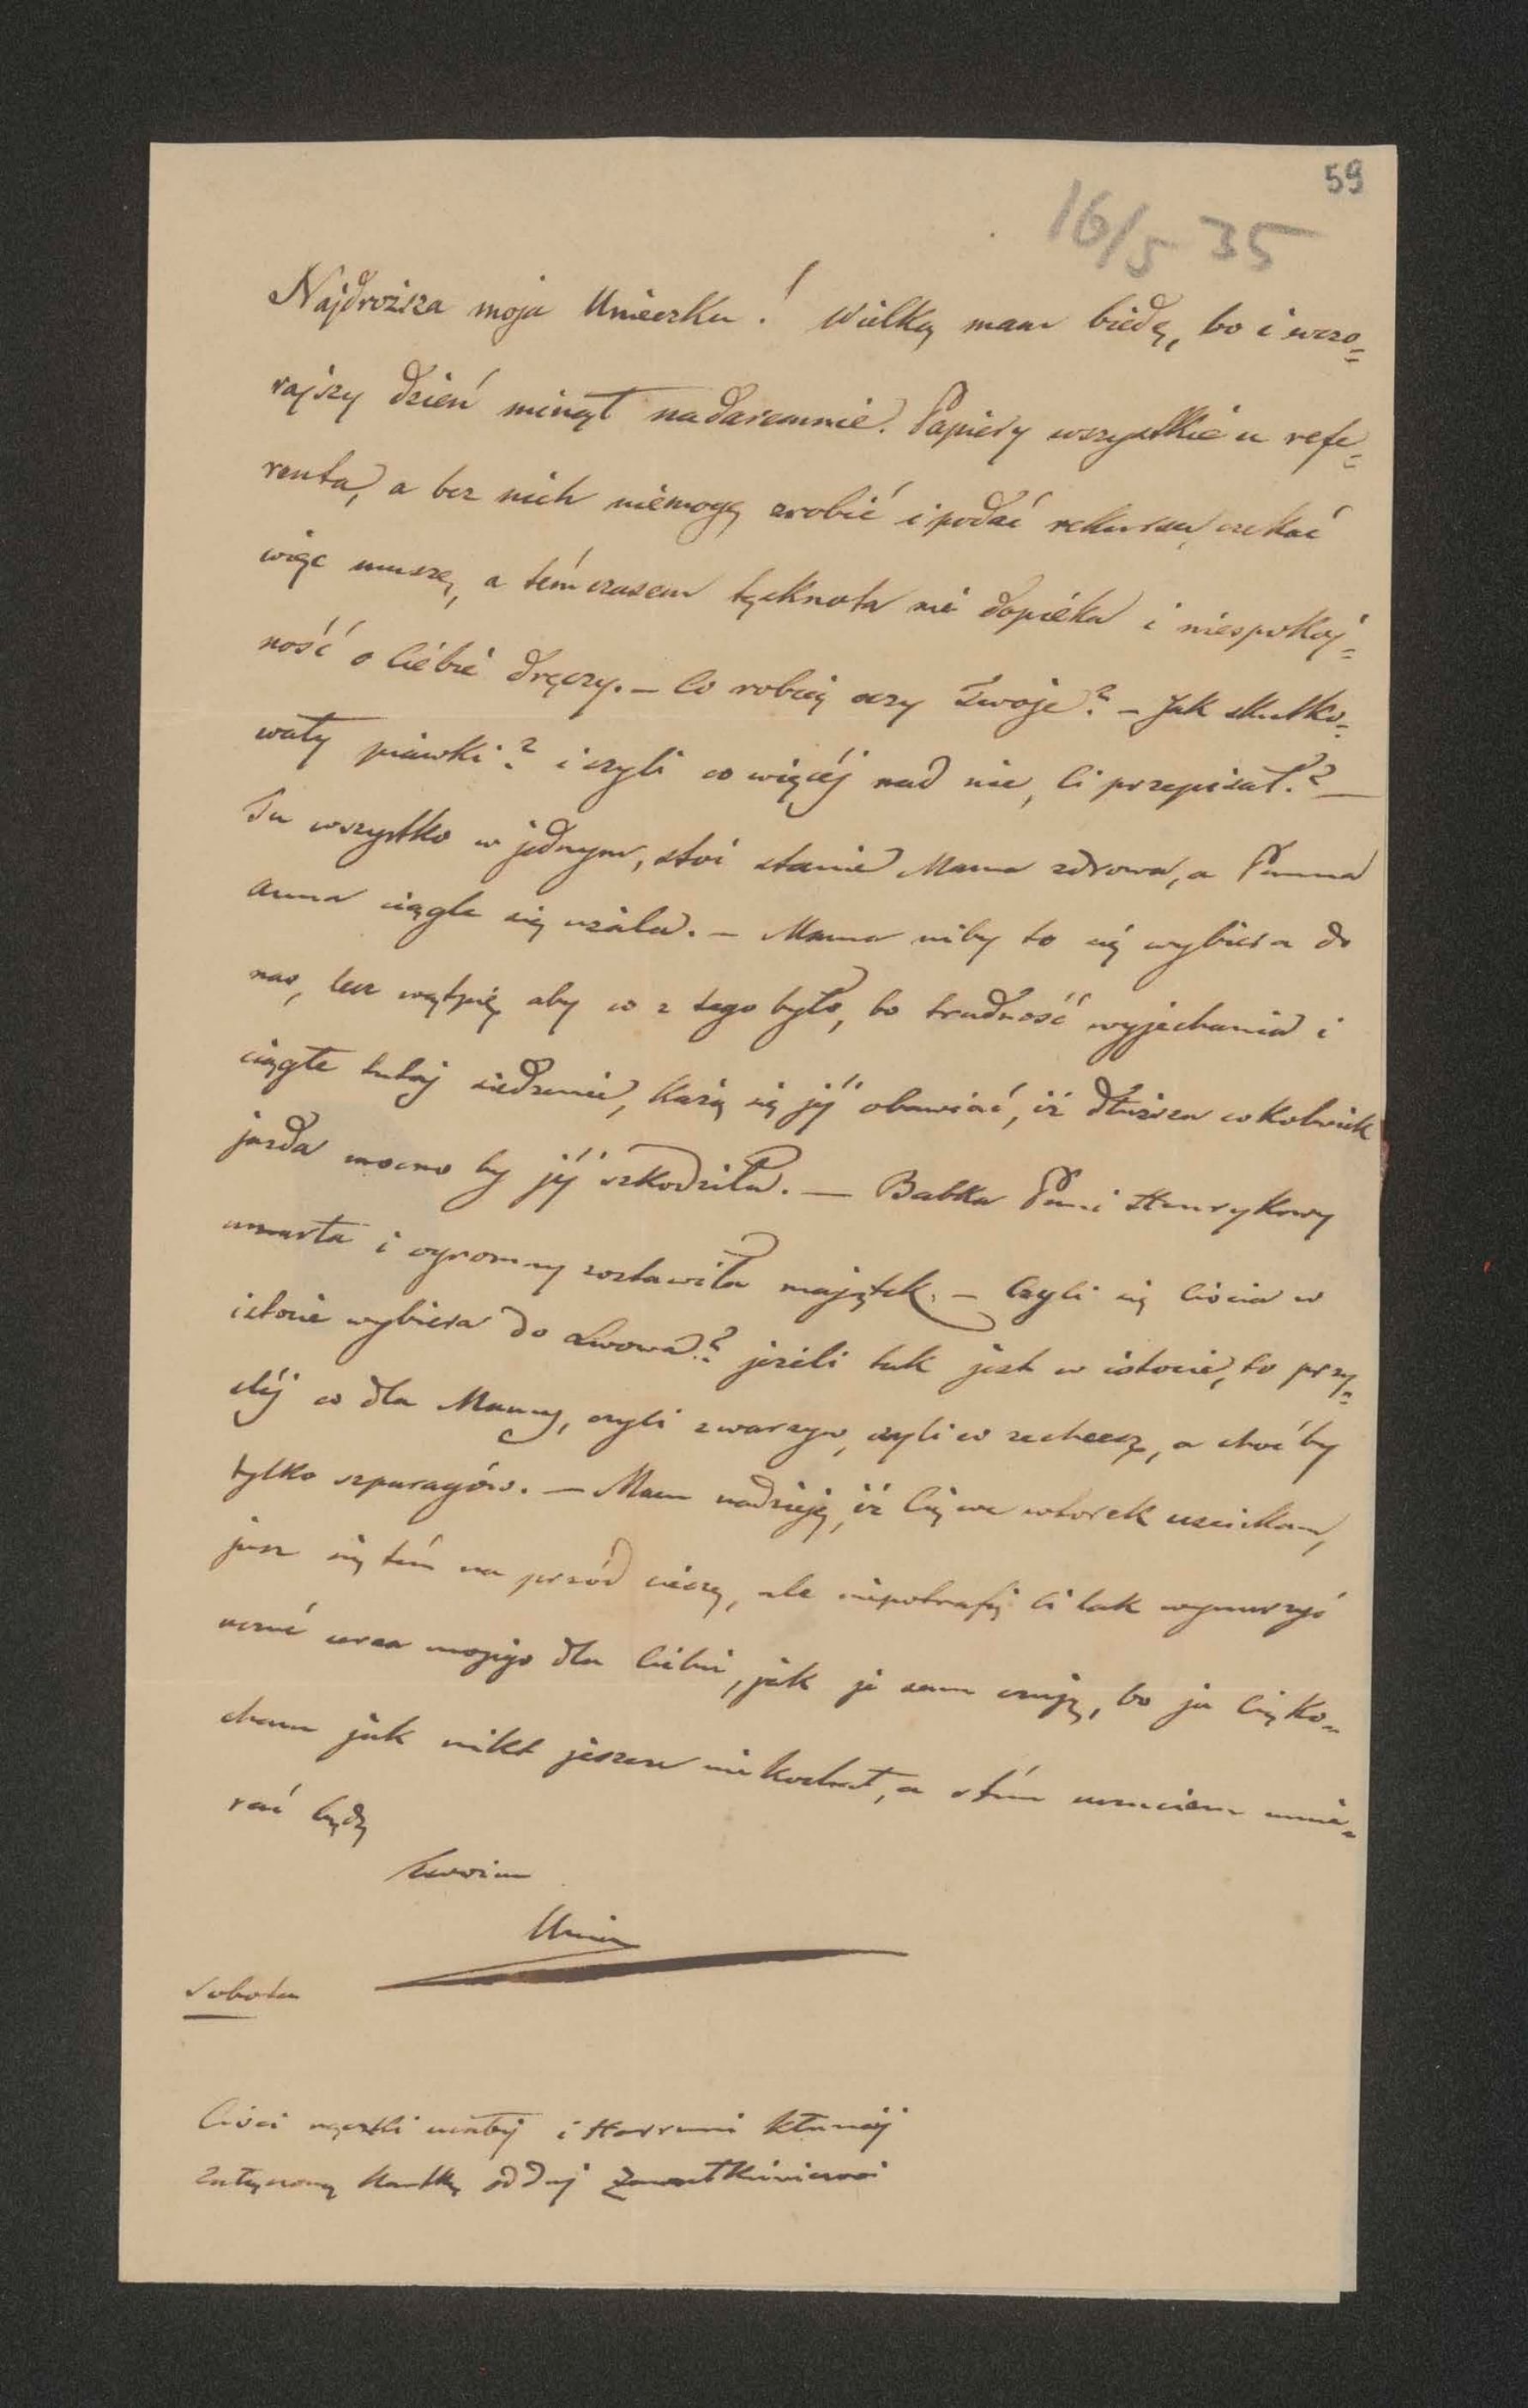 59
16/5 35
Najdroższa moja Unieczku! Wielką mam biédę, bo i wczo=
rajszy dzień minął nadaremnie. Papiéry wszystkie u refe=
renta, a bez nich niemogę zrobić i podać rekursu, czekać
więc muszę, a témczasem tęsknota mi dopiéka i niespokoj=
ność o Ciébie dręczy. – Co robią oczy Twoje? – Jak skutko=
wały piawki? i czyli co więcéj nad nie, Ci przepisał? –
Tu wszystko w jednym, stoi stanie Mama zdrowa, a Panna
Anna ciągle się użala. – Mama niby to się wybiera do
nas, lecz wątpię aby co z tego było, bo trudność wyjechania i
ciągłe tutaj siedzenie, każą się jéj obawiać, iż dłuższa cokolwiek
jazda mocno by jéj szkodziła. – Babka Pani Henrykowy
umarła i ogromny zostawiła majątek. – Czyli się Ciocia w
istocie wybiera do Lwowa? jeżeli tak jest w istocie, to przy=
ślij co dla Mamy, czyli z warzyw, czyli co zechcesz, a choćby
tylko szparagów. – Mam nadzieję, iż Cię we wtorek uściskam,
jusz się tém na przód cieszę, ale niepotrafię Ci tak wynurzyć
uczuć serca mojego dla Ciebie, jak je sam czuję, bo ja Cię ko=
cham jak nikt jeszcze nie kochał, a s tém uczuciem umie=
rać będę
Twoim
Sobota
Cioci rączki ucałuj i
załączoną kartkę oddaj